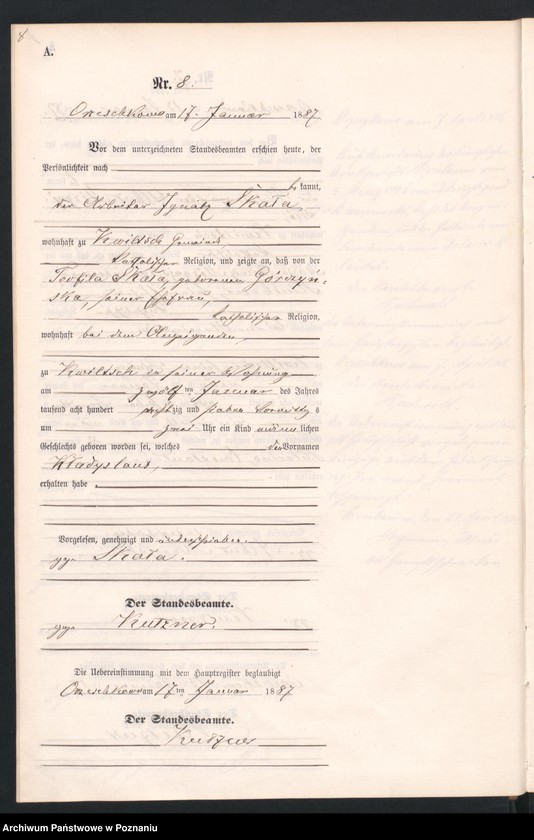 8
A.
Nr. 8.
Orzeschkowo am 17. Januar 1887.
Vor dem unterzeichneten Standesbeamten erschien heute, der
Persönlichkeit nach
be kannt,
der Arbeiter Ignatz Skała,
wohnhaft zu Kwiltsch Gemeinde
katholischer Religion, und zeigte an, daß von der
Teofila Skała, geborenen Górczyń-
ska, seiner Ehefrau,
katholischer Religion,
wohnhaft bei dem
zu Kwiltsch in seiner Wohnung
am zwölf ten Januar des Jahres
tausend acht hundert achtzig und sieben Vormittags
um zwei Uhr ein Kind männlichen
Geschlechts geboren worden sei, welches den Vornamen
Władyslaus,
erhalten habe.
Vorgelesen, genehmigt und unterschrieben.
gez. Skała.
Der Standesbeamte.
gez. Kutzner.
Die Uebereinstimmung mit dem Hauptregister beglaubigt
Orzeschkowo am 17 ten Januar 1887
Der Standesbeamte.
Kutzner
Archiwum Państwowe w Poznaniu